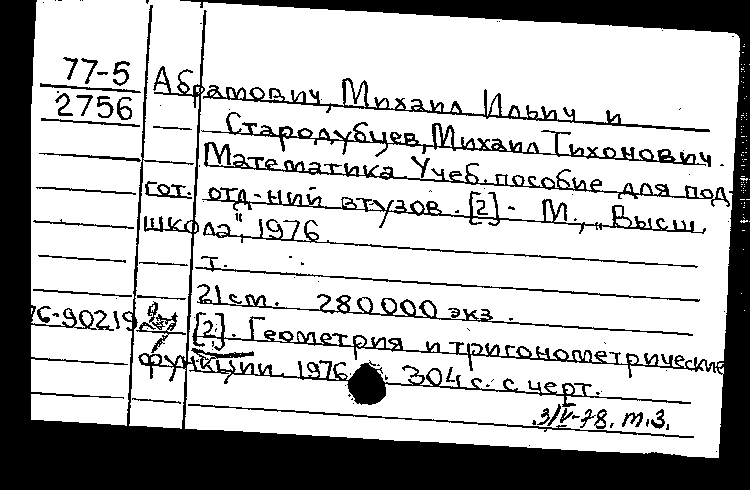 77-5
2756
Абрамович, Михаил Ильич и
Стародубцев, Михаил Тихонович.
Математика Учеб. пособие для под-
гот. отд-ний втузов. [2] - М., „Высш.
школа", 1976.
т.
21 см. 280000 экз.
76-90219
[2]. Геометрия и тригонометрические
функции. 1976. 304 с. с черт.
3/V-78. т.З.